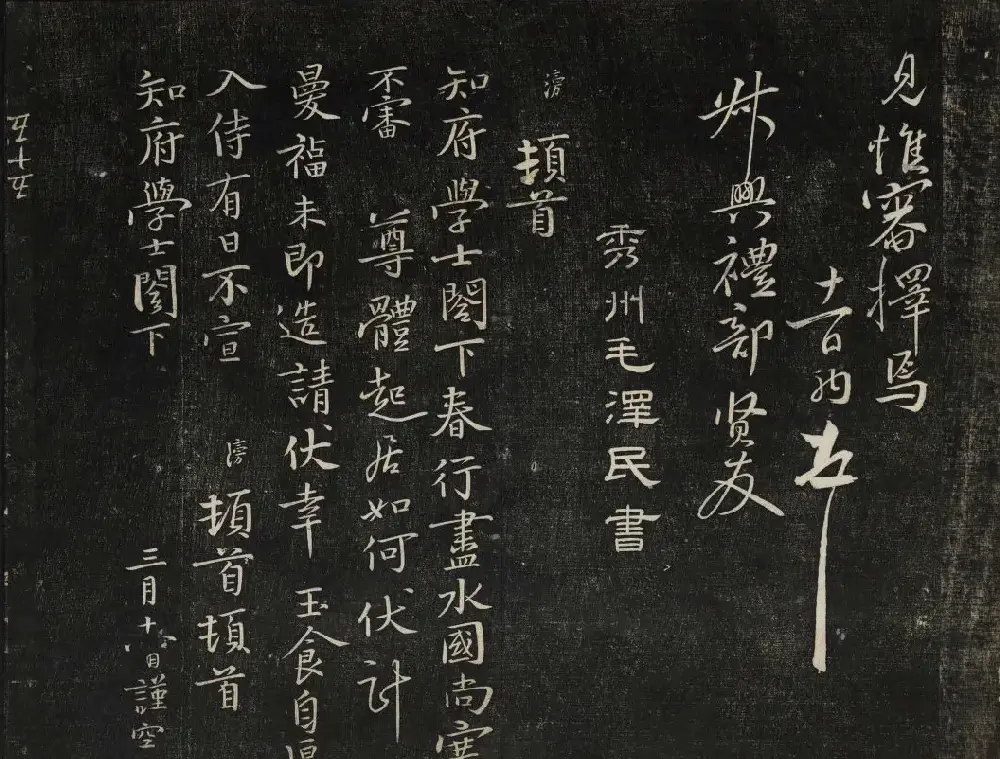 見惟審擇焉
興禮部贤友
秀州毛澤民書
滂 頓首
知府學士閣下春行盡水國尚寒
不審 尊體起居如何伏計
曼福未即造請伏幸 玉食自
入侍有日不宣 滂 頓首頓首
知府學士閣下 三月十日謹空
五十五